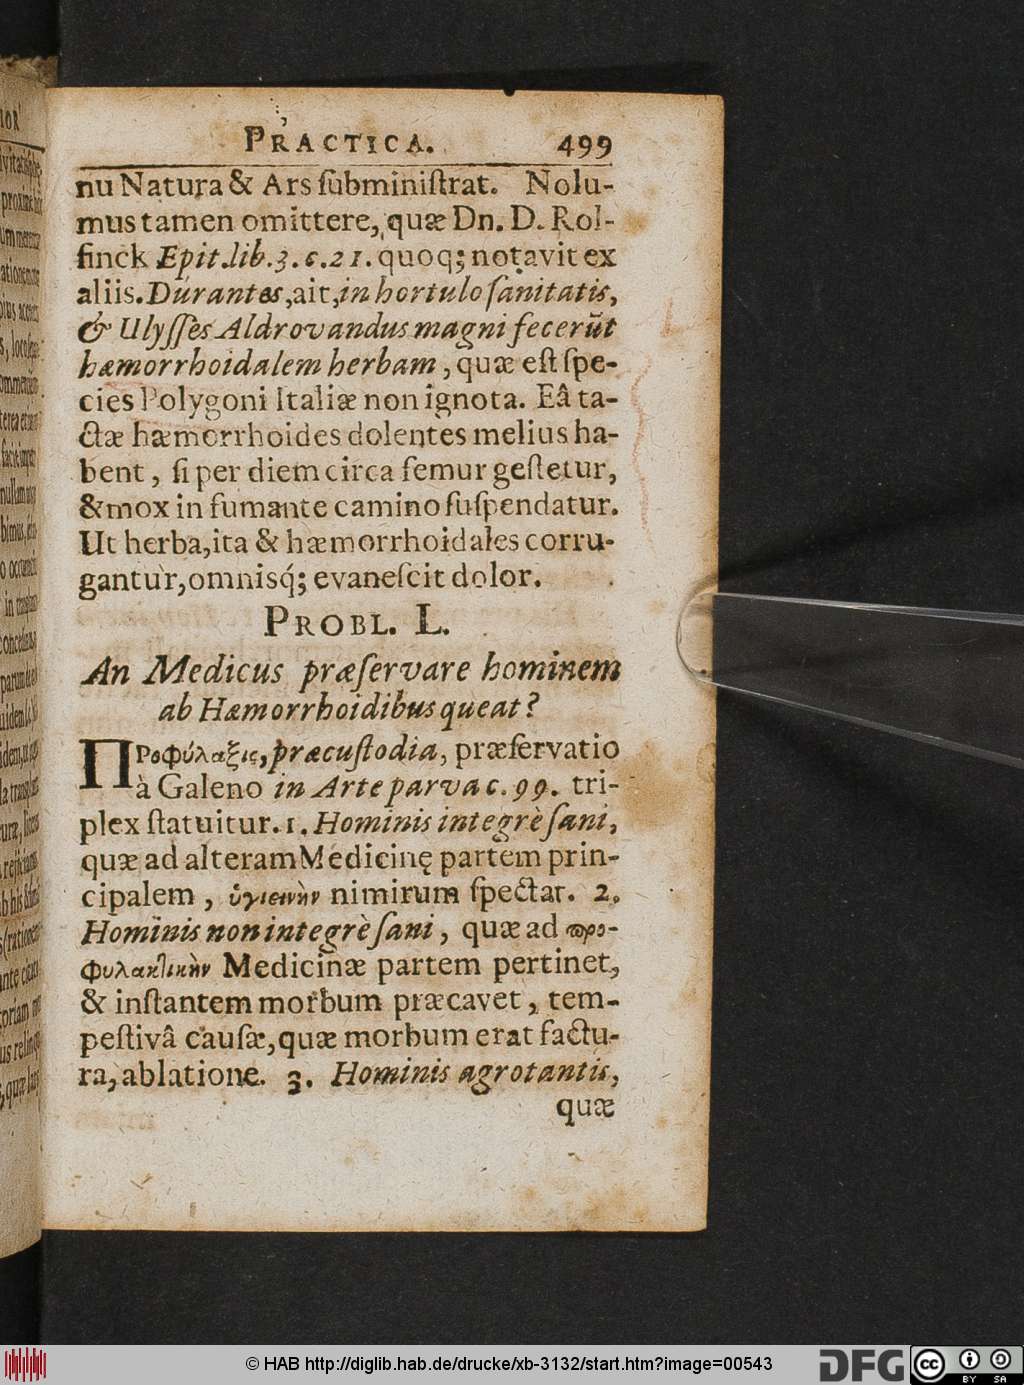 PRACTICA. 499
nu Natura & Ars ſubminiſtrat. Nolu-
mus tamen omittere, quæ Dn. D. Rol-
finck Epit. lib. 3. c. 21. quoq; notavit ex
aliis. Durantes, ait, in hortulo ſanitatis,
& Ulyſſes Aldrovandus magni fecerũt
hæmorrhoidalem herbam, quæ eſt ſpe-
cies Polygoni Italiæ non ignota. Eâ ta-
ctæ hæmorrhoides dolentes melius ha-
bent, ſi per diem circa femur geſtetur,
& mox in fumante camino ſuſpendatur.
Ut herba, ita & hæmorrhoidales corru-
gantur, omnisq́; evaneſcit dolor.
PROBL. L.
An Medicus præſervare hominem
ab Hæmorrhoidibus queat?
ΠΡοφύλαξις, præcuſtodia, præſervatio
à Galeno in Arte parva c. 99. tri-
plex ſtatuitur. 1. Hominis integrè ſani,
quæ ad alteram Medicinę partem prin-
cipalem, ὑγιεινὴν nimirum ſpectat. 2.
Hominis non integrè ſani, quæ ad προ-
φυλακτικὴν Medicinæ partem pertinet,
& inſtantem morbum præcavet, tem-
peſtivâ cauſæ, quæ morbum erat factu-
ra, ablatione. 3. Hominis ægrotantis,
quæ
© HAB http://diglib.hab.de/drucke/xb-3132/start.htm?image=00543
DFG
cc BY SA